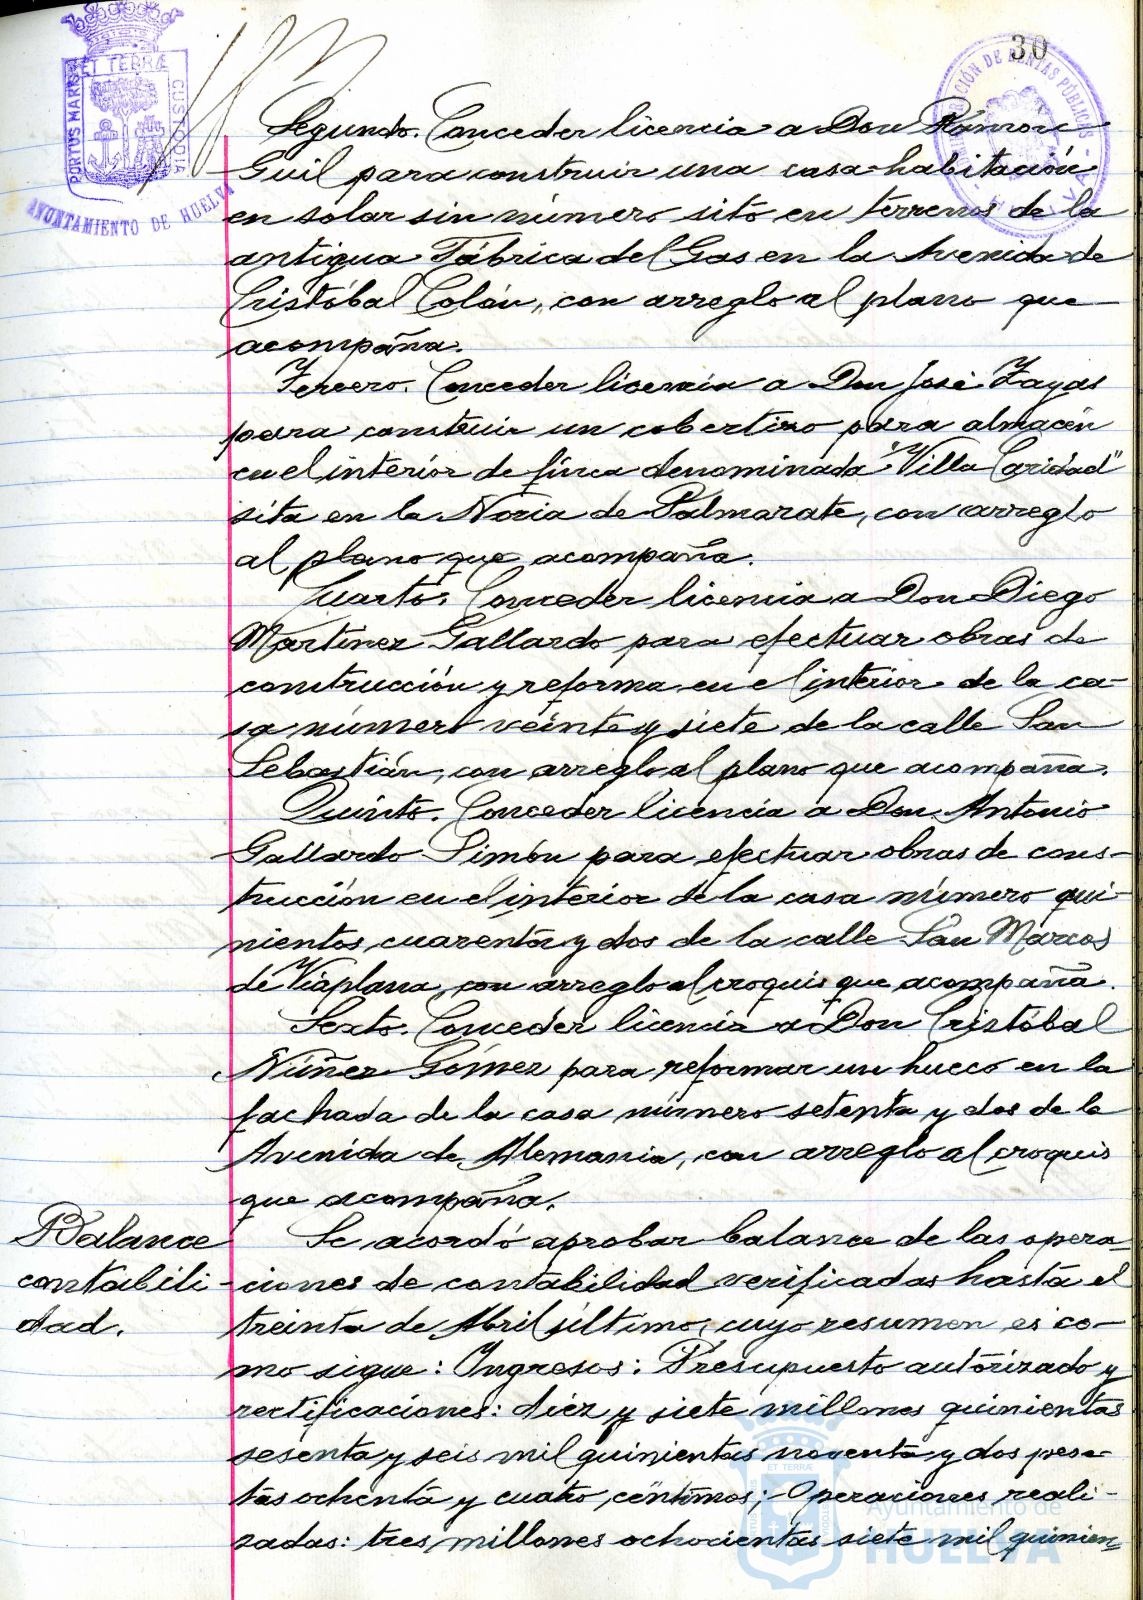 30
PORTUS MARIS ET TERRÆ CUSTODIA
AYUNTAMIENTO DE HUELVA
Segundo. Conceder licencia a Don Ramon
Guil para construir una casa-habitación
en solar sin número sito en terrenos de la
antigua Fábrica del Gas en la Avenida de
Cristóbal Colón, con arreglo al plano que
acompaña.
Tercero. Conceder licencia a Don José Zayas
para construir un cobertizo para almacén
en el interior de finca denominada "Villa Caridad"
sita en la Noria de Palmarate, con arreglo
al plano que acompaña.
Cuarto. Conceder licencia a Don Diego
Martínez Gallardo para efectuar obras de
construcción y reforma en el interior de la ca-
sa número veinte y siete de la calle San
Sebastián, con arreglo al plano que acompaña.
Quinto. Conceder licencia a Don Antonio
Gallardo Simón para efectuar obras de cons-
trucción en el interior de la casa número qui-
nientos cuarenta y dos de la calle San Marcos
de Viaplana, con arreglo al croquis que acompaña.
Sexto. Conceder licencia a Don Cristóbal
Núñez Gómez para reformar un hueco en la
fachada de la casa número setenta y dos de la
Avenida de Alemania, con arreglo al croquis
que acompaña.
Balance
contabili-
dad.
Se acordó aprobar balance de las opera-
ciones de contabilidad verificadas hasta el
treinta de Abril último, cuyo resumen es co-
mo sigue: Ingresos: Presupuesto autorizado y
rectificaciones: diez y siete millones quinientas
sesenta y seis mil quinientas noventa y dos pese-
tas ochenta y cuatro céntimos; - Operaciones reali-
zadas: tres millones ochocientas siete mil quinien-
Ayuntamiento de
HUELVA